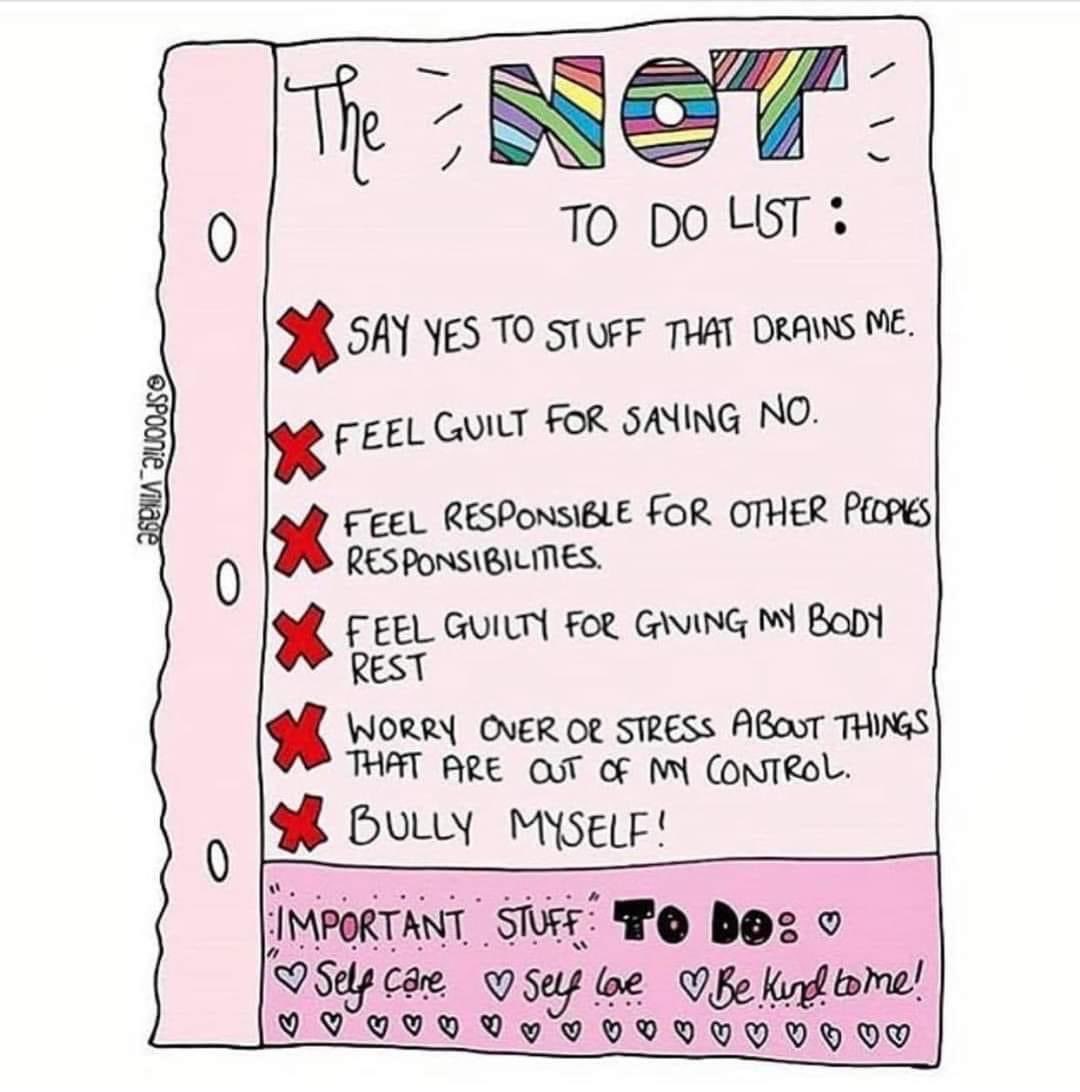 The NOT
TO DO LIST:
SAY YES TO STUFF THAT DRAINS ME.
FEEL GUILT FOR SAYING NO.
FEEL RESPONSIBLE FOR OTHER PEOPLES
RESPONSIBILITIES.
FEEL GUILTY FOR GIVING MY BODY
REST
WORRY OVER OR STRESS ABOUT THINGS
THAT ARE OUT OF MY CONTROL.
BULLY MYSELF!
"IMPORTANT STUFF" TO DO:
Self care Self love Be Kind to me!
@SPOONIE_VILLAGE